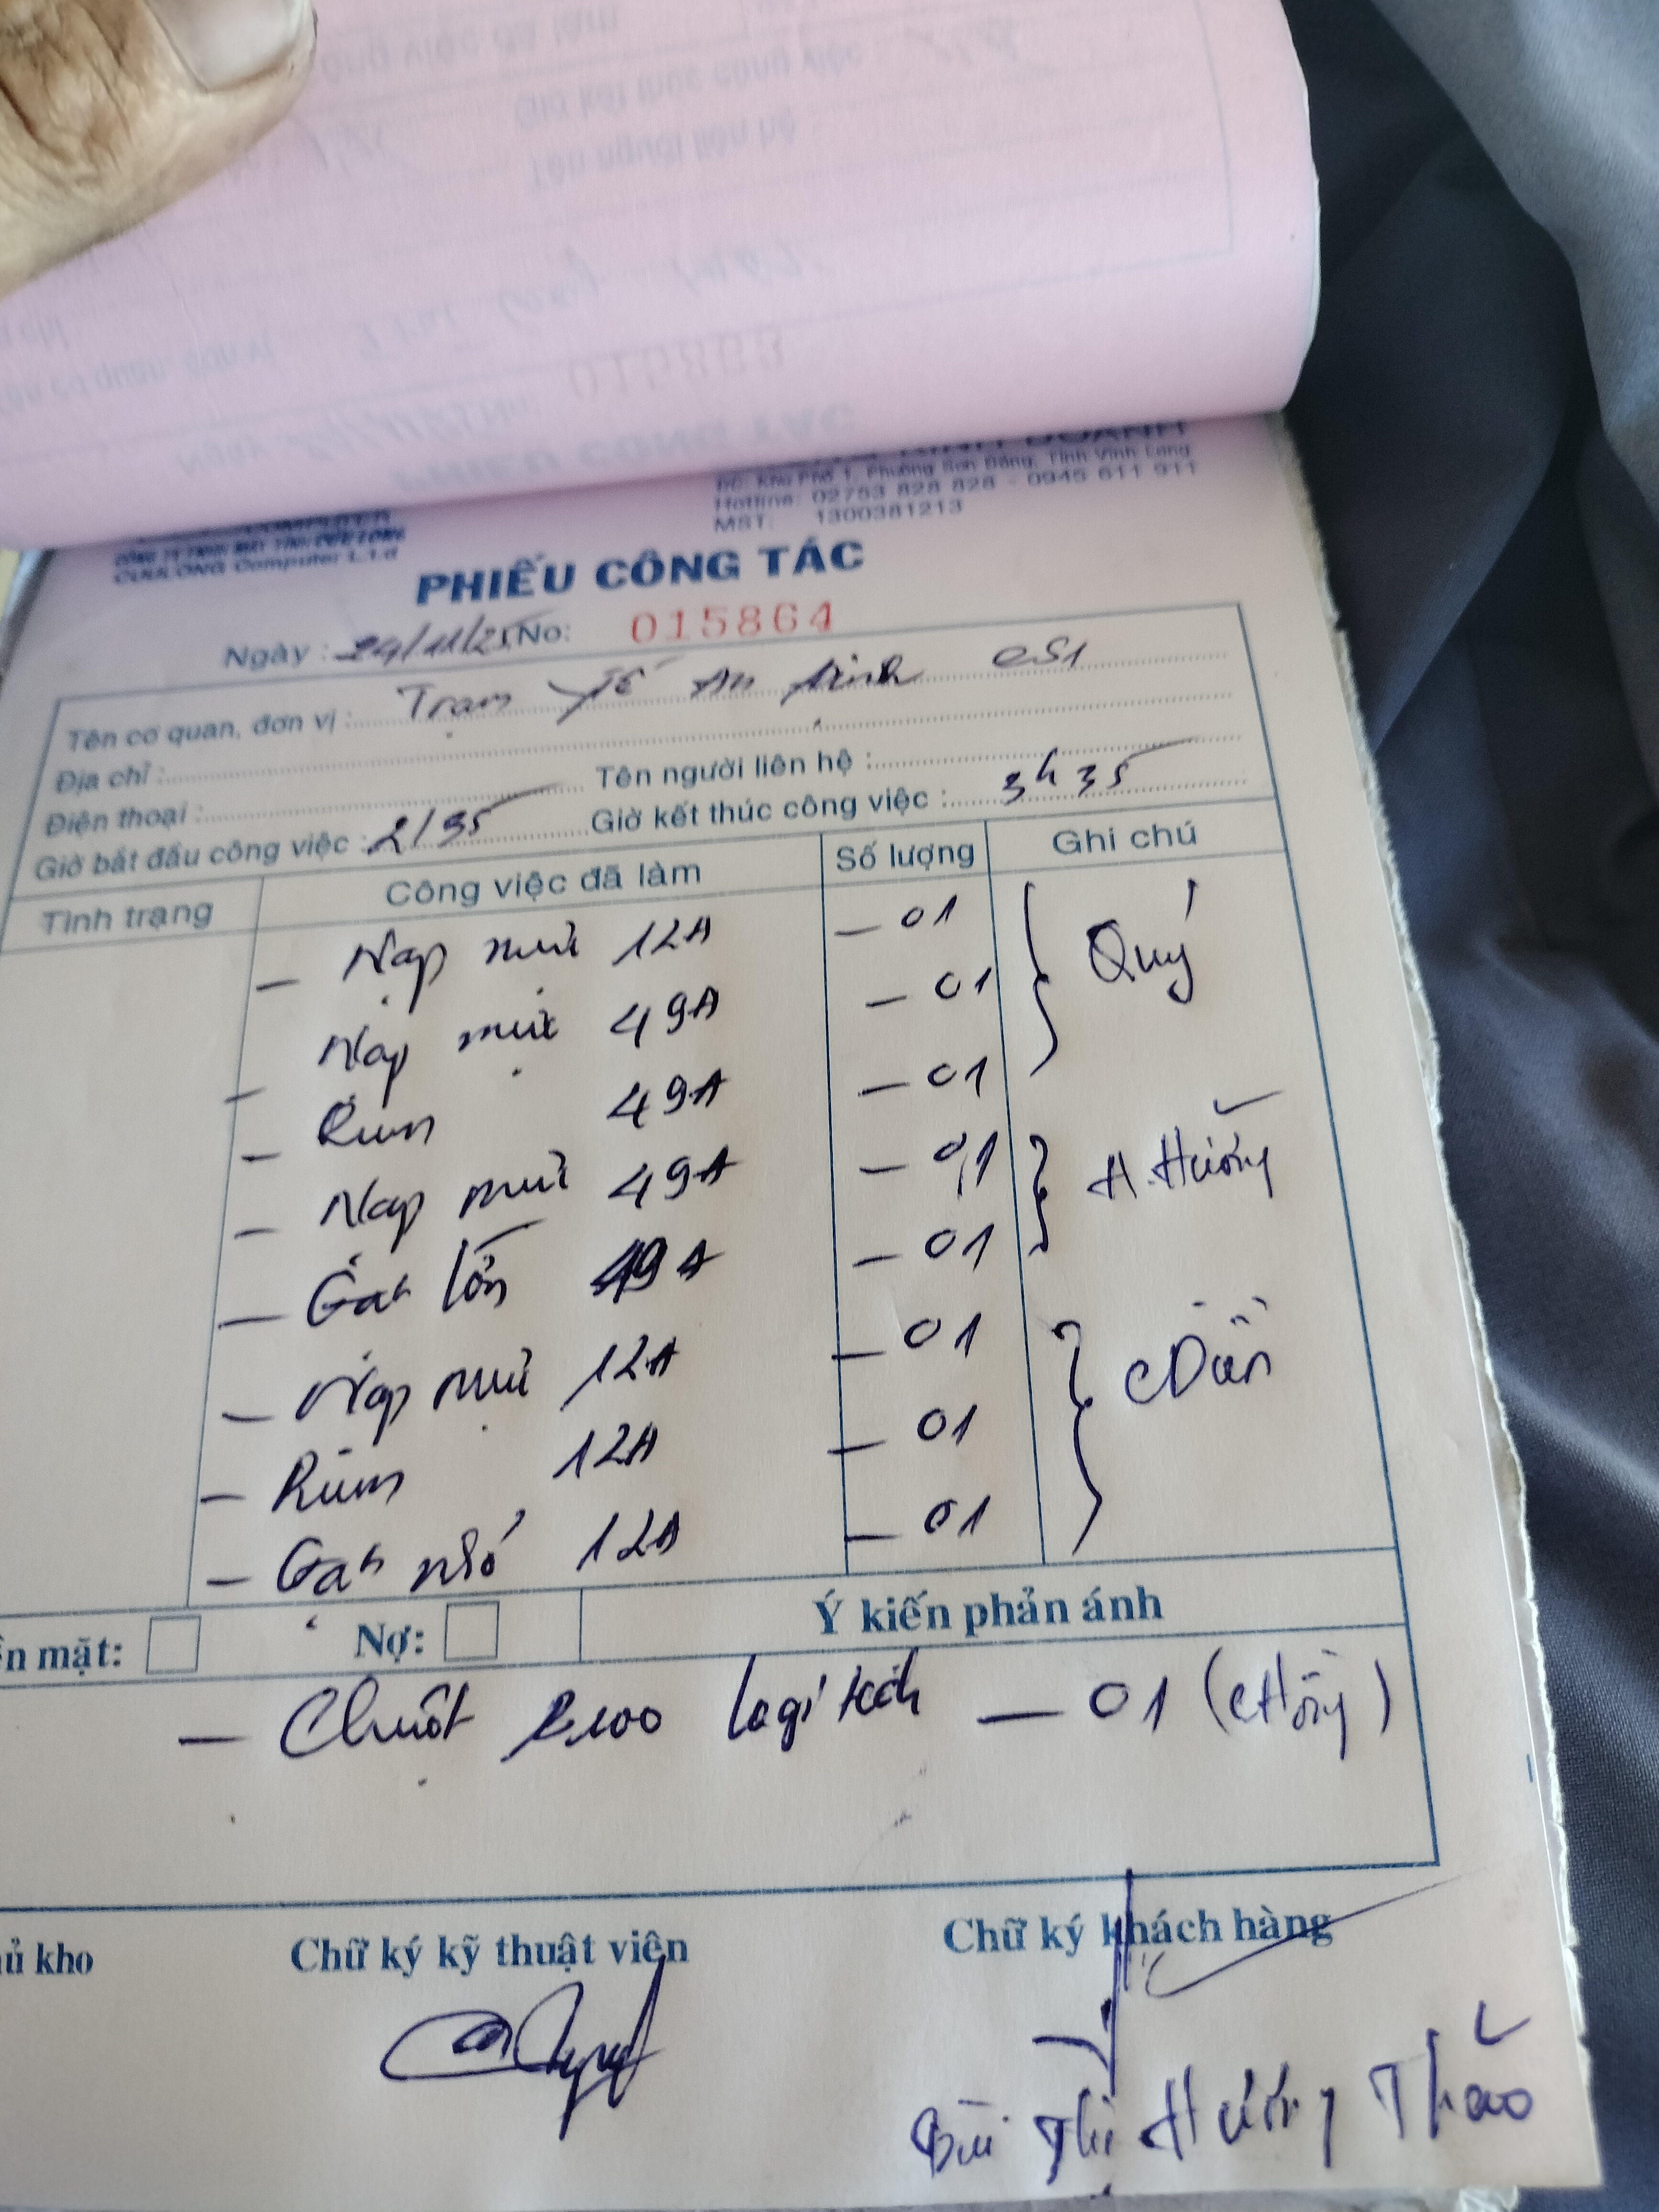 ĐC: Khu Phố 1, Phường Sơn Đông, Tỉnh Vĩnh Long
Hotline: 02753 828 828 - 0945 611 911
MST: 1300381213
CÔNG TY TNHH MÁY TÍNH CỬU LONG
CUULONG Computer L.t.d
PHIẾU CÔNG TÁC
Ngày : 24/11/25 No: 015864
Tên cơ quan, đơn vị : Trạm Y Tế An Định CS1
Địa chỉ :
Điện thoại : Tên người liên hệ :
Giờ bắt đầu công việc : 2/35 Giờ kết thúc công việc : 3h35
Tình trạng Công việc đã làm Số lượng Ghi chú
- Nạp mực 12A - 01
- Nạp mực 49A - 01 Quý
- Rum 49A - 01
- Nạp mực 49A - 01 H. Hường
- Gạt lớn 49A - 01
- Nạp mực 12A - 01
- Rum 12A - 01
- Gạt nhỏ 12A - 01
Nợ: Ý kiến phản ánh
- Chuột B100 logitech - 01 (cHồng)
Chữ ký kỹ thuật viên Chữ ký khách hàng
Bùi Thị Hường Thảo